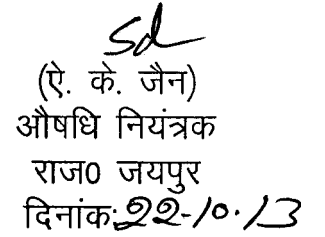 Sd
(ऐ. के. जैन)
औषधि नियंत्रक
राज0 जयपुर
दिनांक:22-10.13